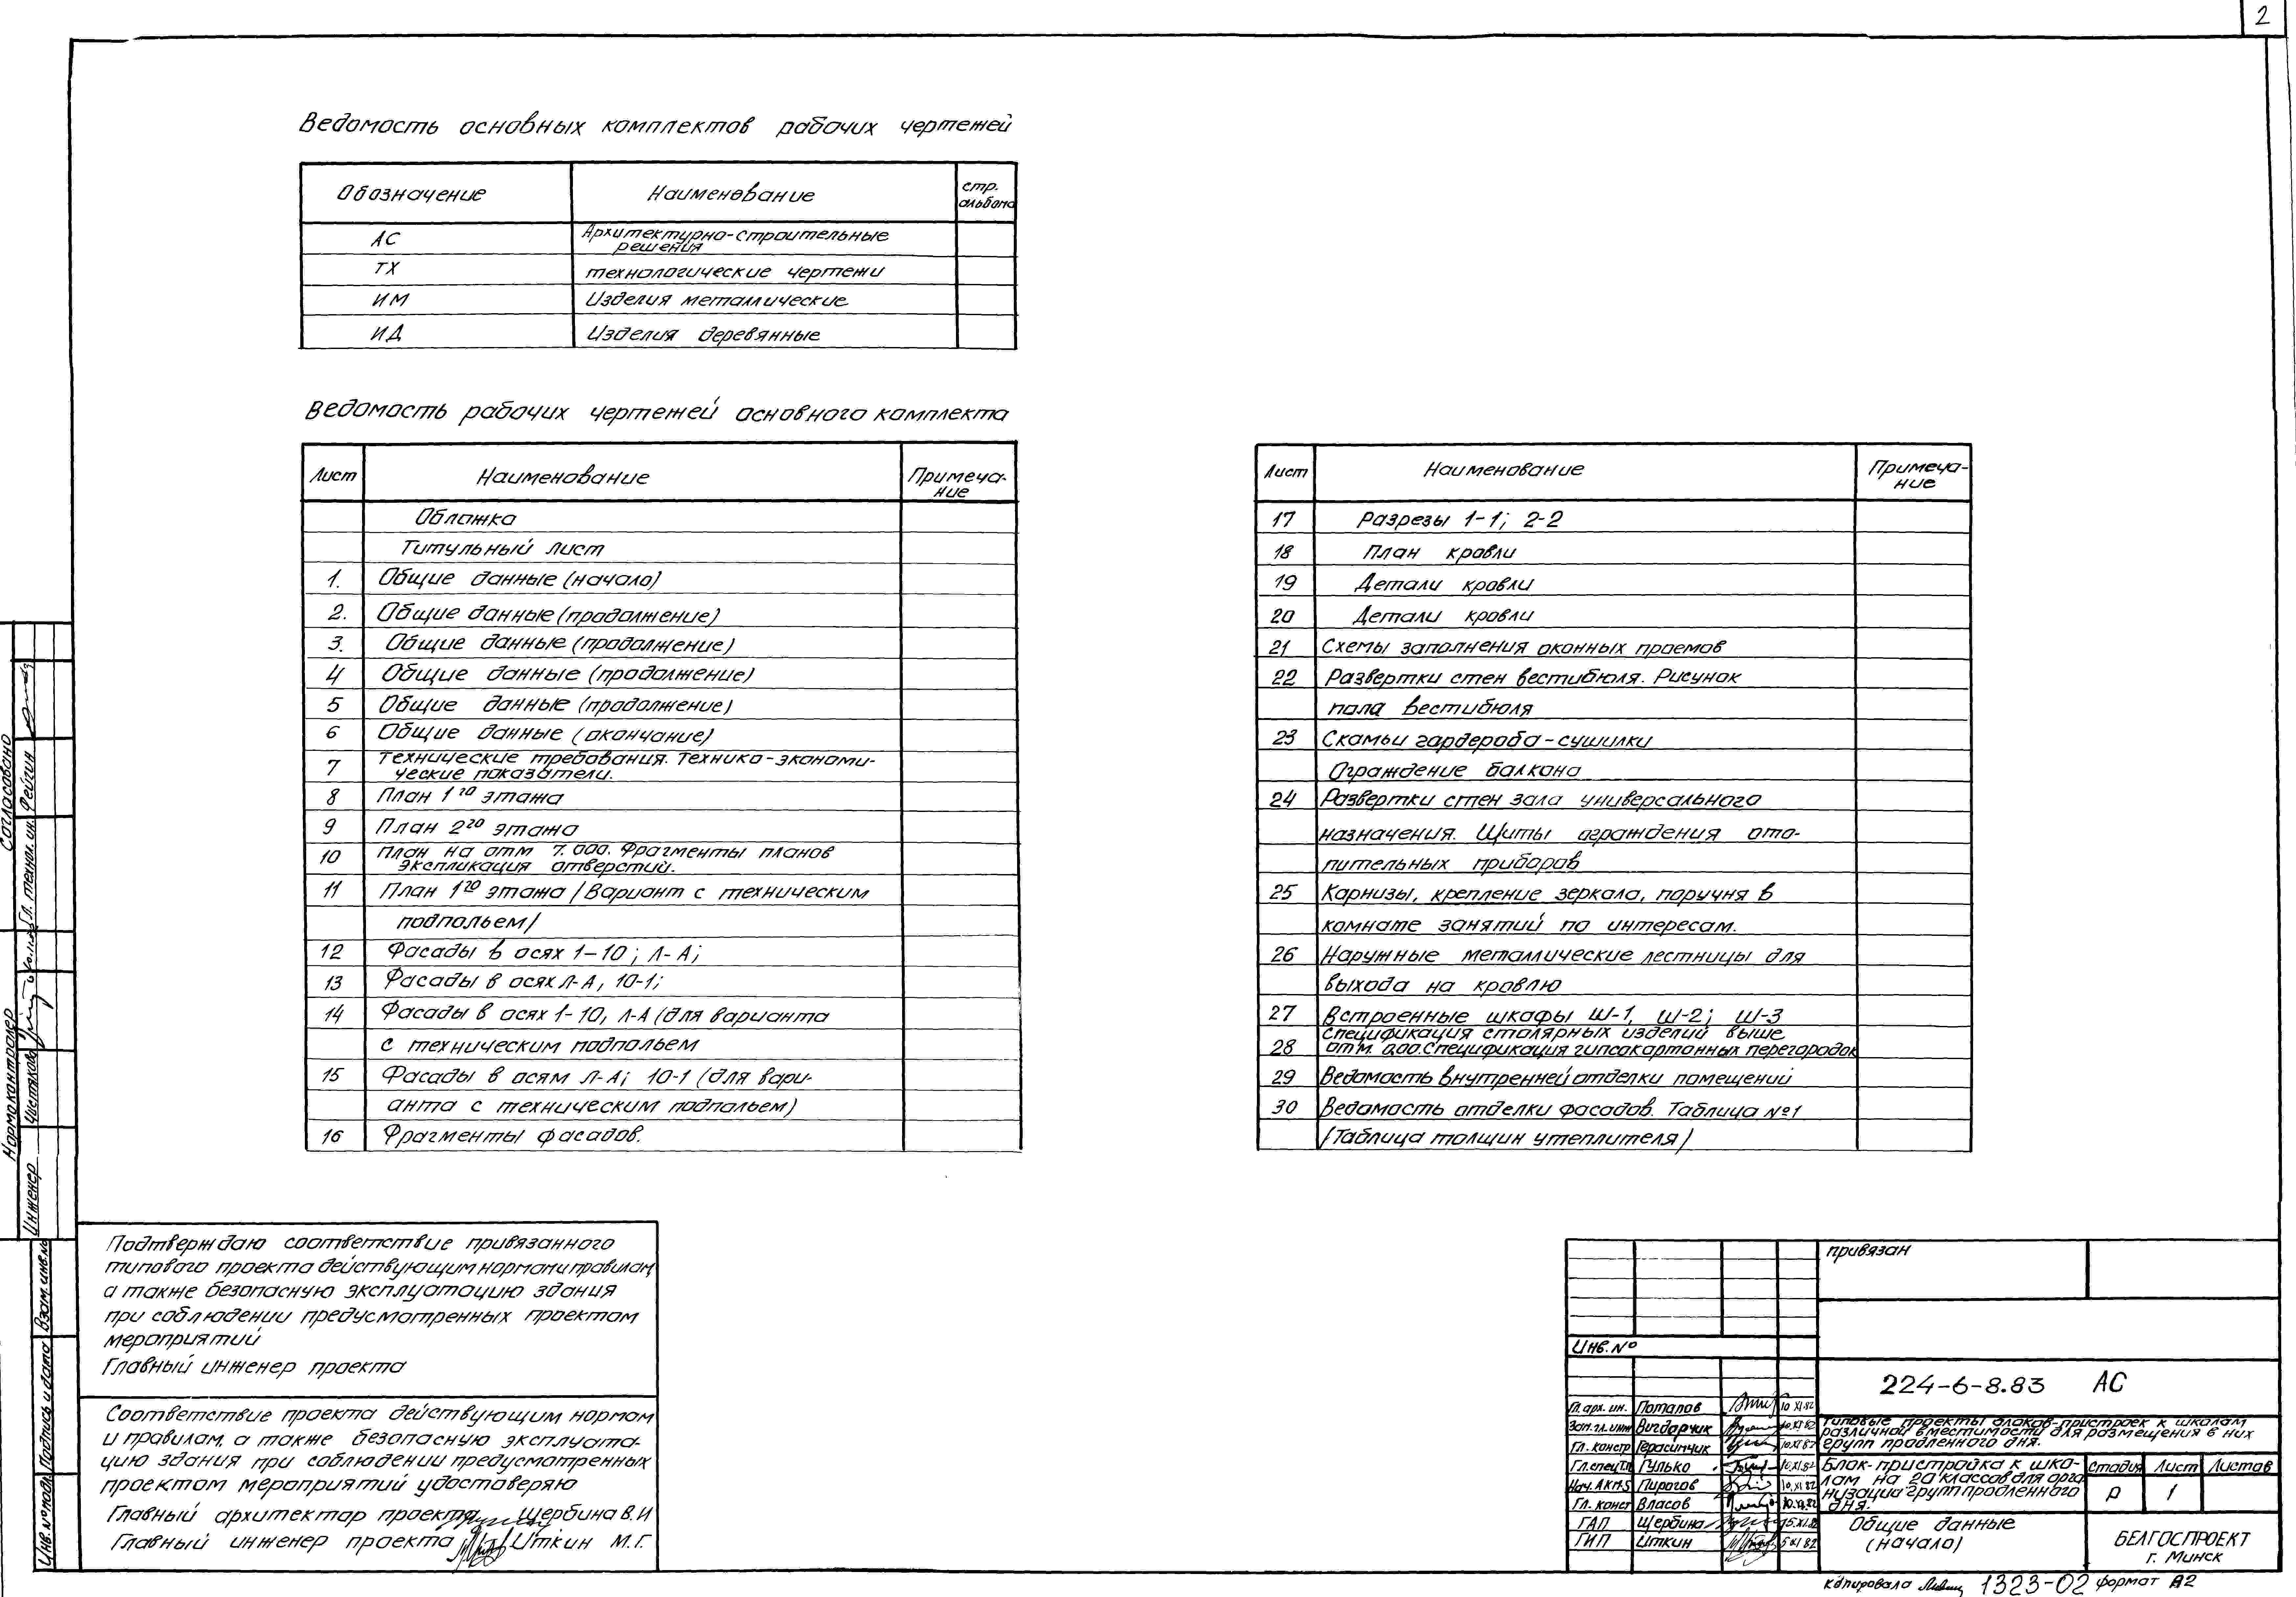 2
Ведомость основных комплектов рабочих чертежей
Обозначение Наименование стр. альбома
АС Архитектурно-строительные
решения
ТХ технологические чертежи
ИМ Изделия металлические
ИД Изделия деревянные
Ведомость рабочих чертежей основного комплекта
Лист Наименование Примеча-
ние
Обложка
Титульный лист
1. Общие данные (начало)
2. Общие данные (продолжение)
3. Общие данные (продолжение)
4 Общие данные (продолжение)
5 Общие данные (продолжение)
6 Общие данные (окончание)
7 Технические требования. Технико-экономи-
ческие показатели.
8 План 1го этажа
9 План 2го этажа
10 План на отм 7.000. Фрагменты планов
экспликация отверстий.
11 План 1го этажа /Вариант с техническим
подпольем/
12 Фасады в осях 1-10; Л-А;
13 Фасады в осях Л-А, 10-1;
14 Фасады в осях 1-10, Л-А (для варианта
с техническим подпольем
15 Фасады в осям Л-А; 10-1 (для вари-
анта с техническим подпольем)
16 Фрагменты фасадов.
Лист Наименование Примеча-
ние
17 Разрезы 1-1; 2-2
18 План кровли
19 Детали кровли
20 Детали кровли
21 Схемы заполнения оконных проемов
22 Развертки стен вестибюля. Рисунок
пола вестибюля
23 Скамьи гардероба-сушилки
Ограждение балкона
24 Развертки стен зала универсального
назначения. Щиты ограждения ото-
пительных приборов
25 Карнизы, крепление зеркала, поручня в
комнате занятий по интересам.
26 Наружные металлические лестницы для
выхода на кровлю
27 Встроенные шкафы Ш-1, Ш-2; Ш-3
28 Спецификация столярных изделий выше
отм. 0,00. Спецификация гипсокартонных перегородок
29 Ведомость внутренней отделки помещений
30 Ведомость отделки фасадов. Таблица №1
/Таблица толщин утеплителя/
Подтверждаю соответствие привязанного
типового проекта действующим нормам и правилам,
а также безопасную эксплуатацию здания
при соблюдении предусмотренных проектом
мероприятий
Главный инженер проекта
Соответствие проекта действующим нормам
и правилам, а также безопасную эксплуата-
цию здания при соблюдении предусмотренных
проектом мероприятий удостоверяю
Главный архитектор проекта Щербина В.И
Главный инженер проекта Иткин М.Г.
Согласовано
Гл. технол. ин. Рейгин
Нормоконтролер
Инженер Шестакова
Взам. инв.№
Подпись и дата
Инв.№ подл.
привязан
Инв.№
224-6-8.83 АС
Гл. арх. ин. Потапов 10 XI.82
Зам. гл. инж Вигдорчик 10.XI.82
Гл. констр Герасимчик 10.XI.82
Гл. спец Гулько 10.XI.82
Нач. АКМ-5 Пирогов 10.XI.82
Гл. конст Власов 10.XI.82
ГАП Щербина 15.XI.82
ГИП Иткин 5 XI 82
Типовые проекты блоков-пристроек к школам
различной вместимости для размещения в них
групп продленного дня.
Блок-пристройка к шко-
лам на 20 классов для орга
низации групп продленного
дня.
Стадия Лист Листов
Р 1
Общие данные
(начало)
БЕЛГОСПРОЕКТ
г. Минск
Копировала 1323-02 формат А2